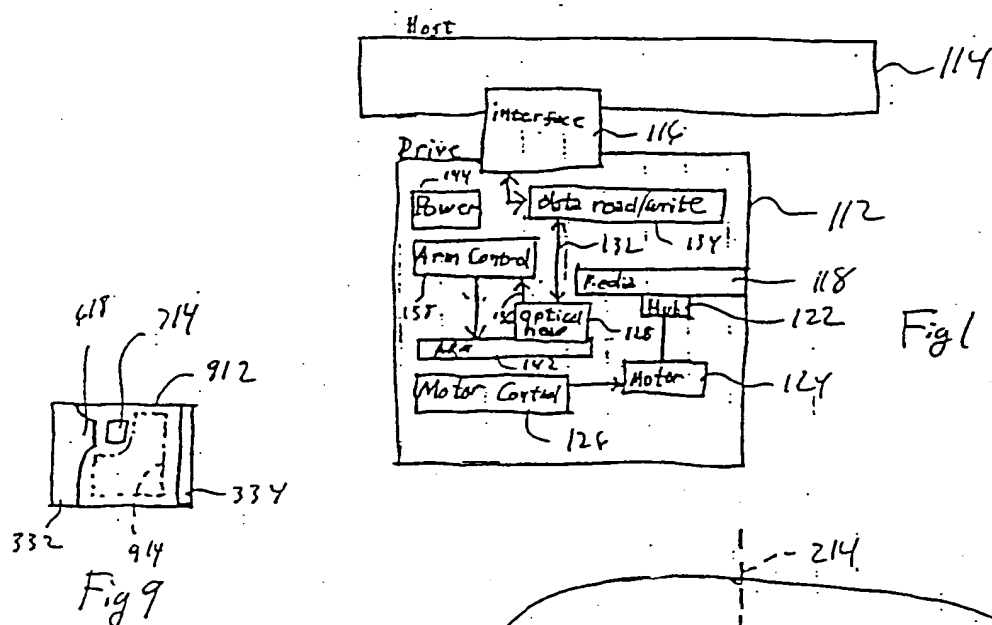 Host
114
interface
116
Drive
144
Power
data read/write
112
132
134
Arm Control
Media
118
138
136
optical
128
Hub
122
142
Motor
124
Motor Control
126
Fig 1
418
714
912
332
334
914
Fig 9
214